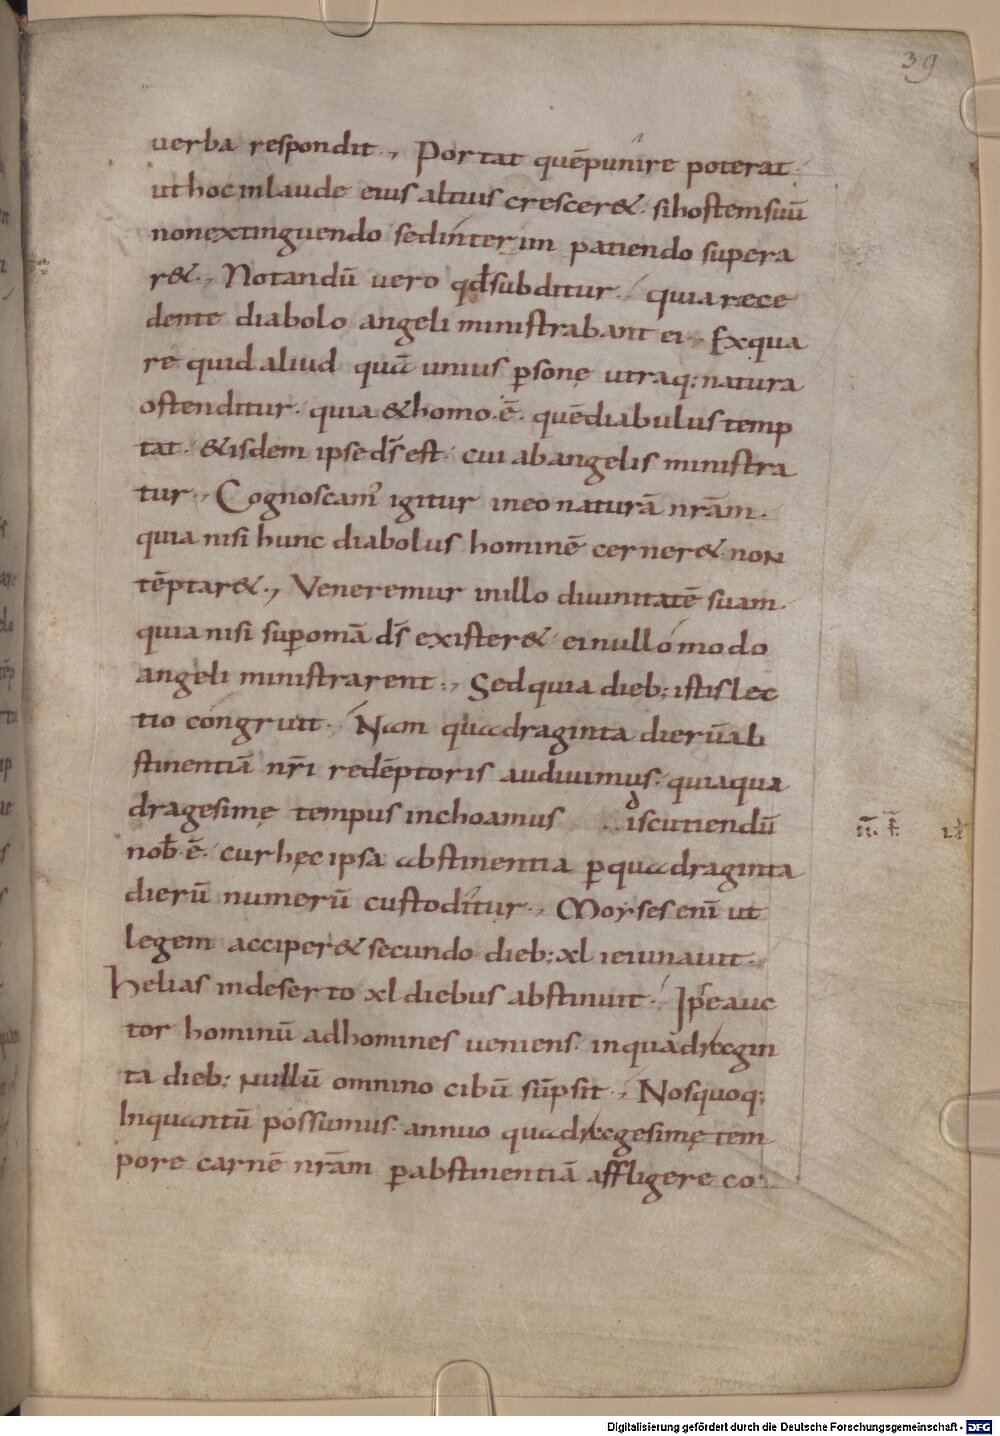 39
uerba respondit., Portat quēpunire poterat.
uthocinlaude eius altius crescer&. sihostemsuū
nonextinguendo sedinterim patiendo supera
r&., Notandū uero qđsubditur. quiarece
dente diabolo angeli ministrabant ei., Exqua
re quid aliud quā unius ꝑsonę utraq;natura
ostenditur. quia &homo.ē. quēdiabulus temp
tat. &isdem ipseds̄est. cui abangelis ministra
tur., Cognoscam᾽ igitur ineo naturā nrām.
quia nisi hunc diabolus hominē cerner& non
tēptar&., Veneremur inillo diuinitatē suam.
quia nisi suꝑomā ds̄ exister& einullomodo
angeli ministrarent., Sedquia dieb; istislec
tio congruit. Nam quadraginta dierūab
stinentiā nrī redēptoris audiuimus. quiaqua
dragesimę tempus inchoamus discutiendū
nob̄.ē. curhęcipsa abstinentia ꝑquadraginta
dierū numerū custoditur., Moyses enī ut
legem acciper&secundo dieb;xl ieiunauit.
Helias indeserto xl diebus abstinuit. Ip̄eauc
tor hominū adhomines ueniens. inquadragin
ta dieb; nullū omnino cibū sūpsit., Nosquoq;
Inquantū possumus. annuo quadragesimę tem
pore carnē nrām ꝑabstinentiā affligere co